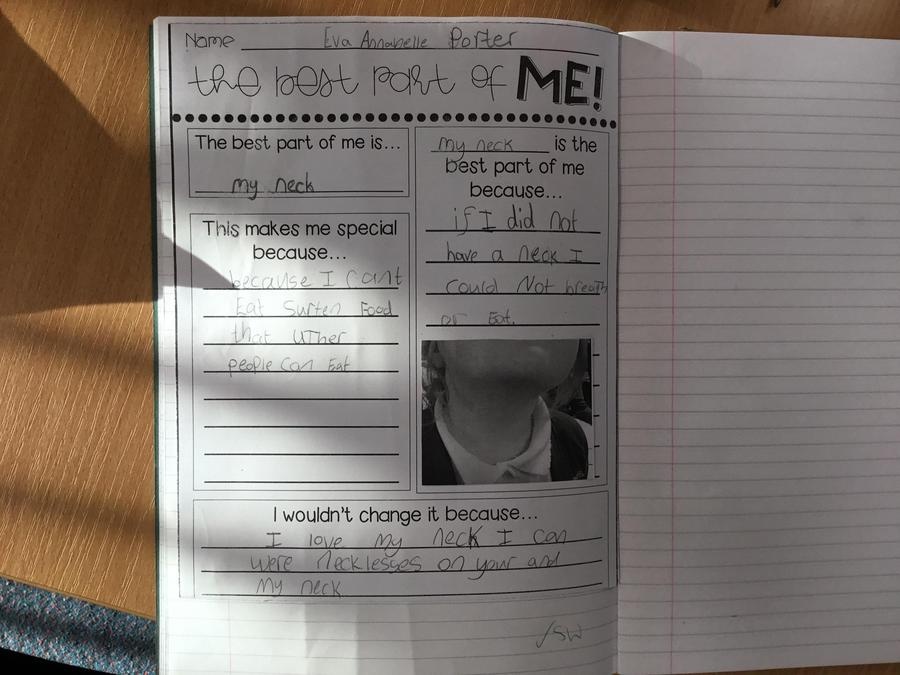 Name Eva Annabelle Porter
the best part of ME!
The best part of me is...
my neck
This makes me special
because...
because I cant
Eat Surten Food
that UTher
people Can Eat
my neck is the
best part of me
because...
if I did not
have a neck I
could Not breath
or Eat.
I wouldn't change it because...
I love my neck I can
were necklesses on your and
my neck
/SW